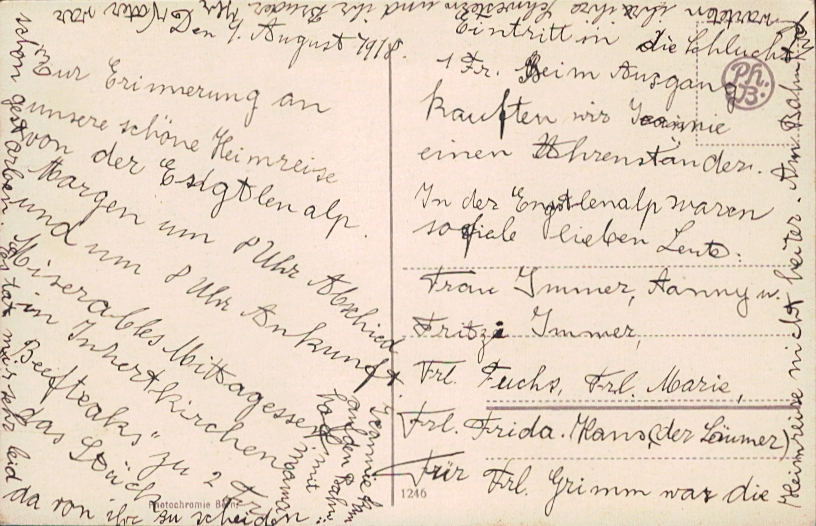 Den 1. August 1918.
Zur Erinnerung an
unsere schöne Heimreise
von der Engstlenalp.
Morgen um 8 Uhr Abschied
und um 8 Uhr Ankunft.
Miserables Mittagessen
in Innertkirchen
"Beefteaks" zu 2 Fr.
das Stück
Eintritt in die Schlucht
1 Fr. Beim Ausgang
kauften wir Jeannie
einen Uhrenständer.
In der Engstlenalp waren
so viele lieben Leute:
Frau Immer, Nanny u.
Fritzi Immer,
Frl. Fuchs, Frl. Marie,
Frl. Frida. Hans, (der Säumer)
Für Frl. Grimm war die
Heimreise nicht heiter. Am Bahnhof
warteten ihr ihre Schwestern und ihr Bruder. Ihr Vater war
schon gestorben. Es tat mir sehr leid
da von ihr zu scheiden
Jeannie kam
auf den Bahn-
hof mit
Maman
Photochromie
1246
Ph.
B.